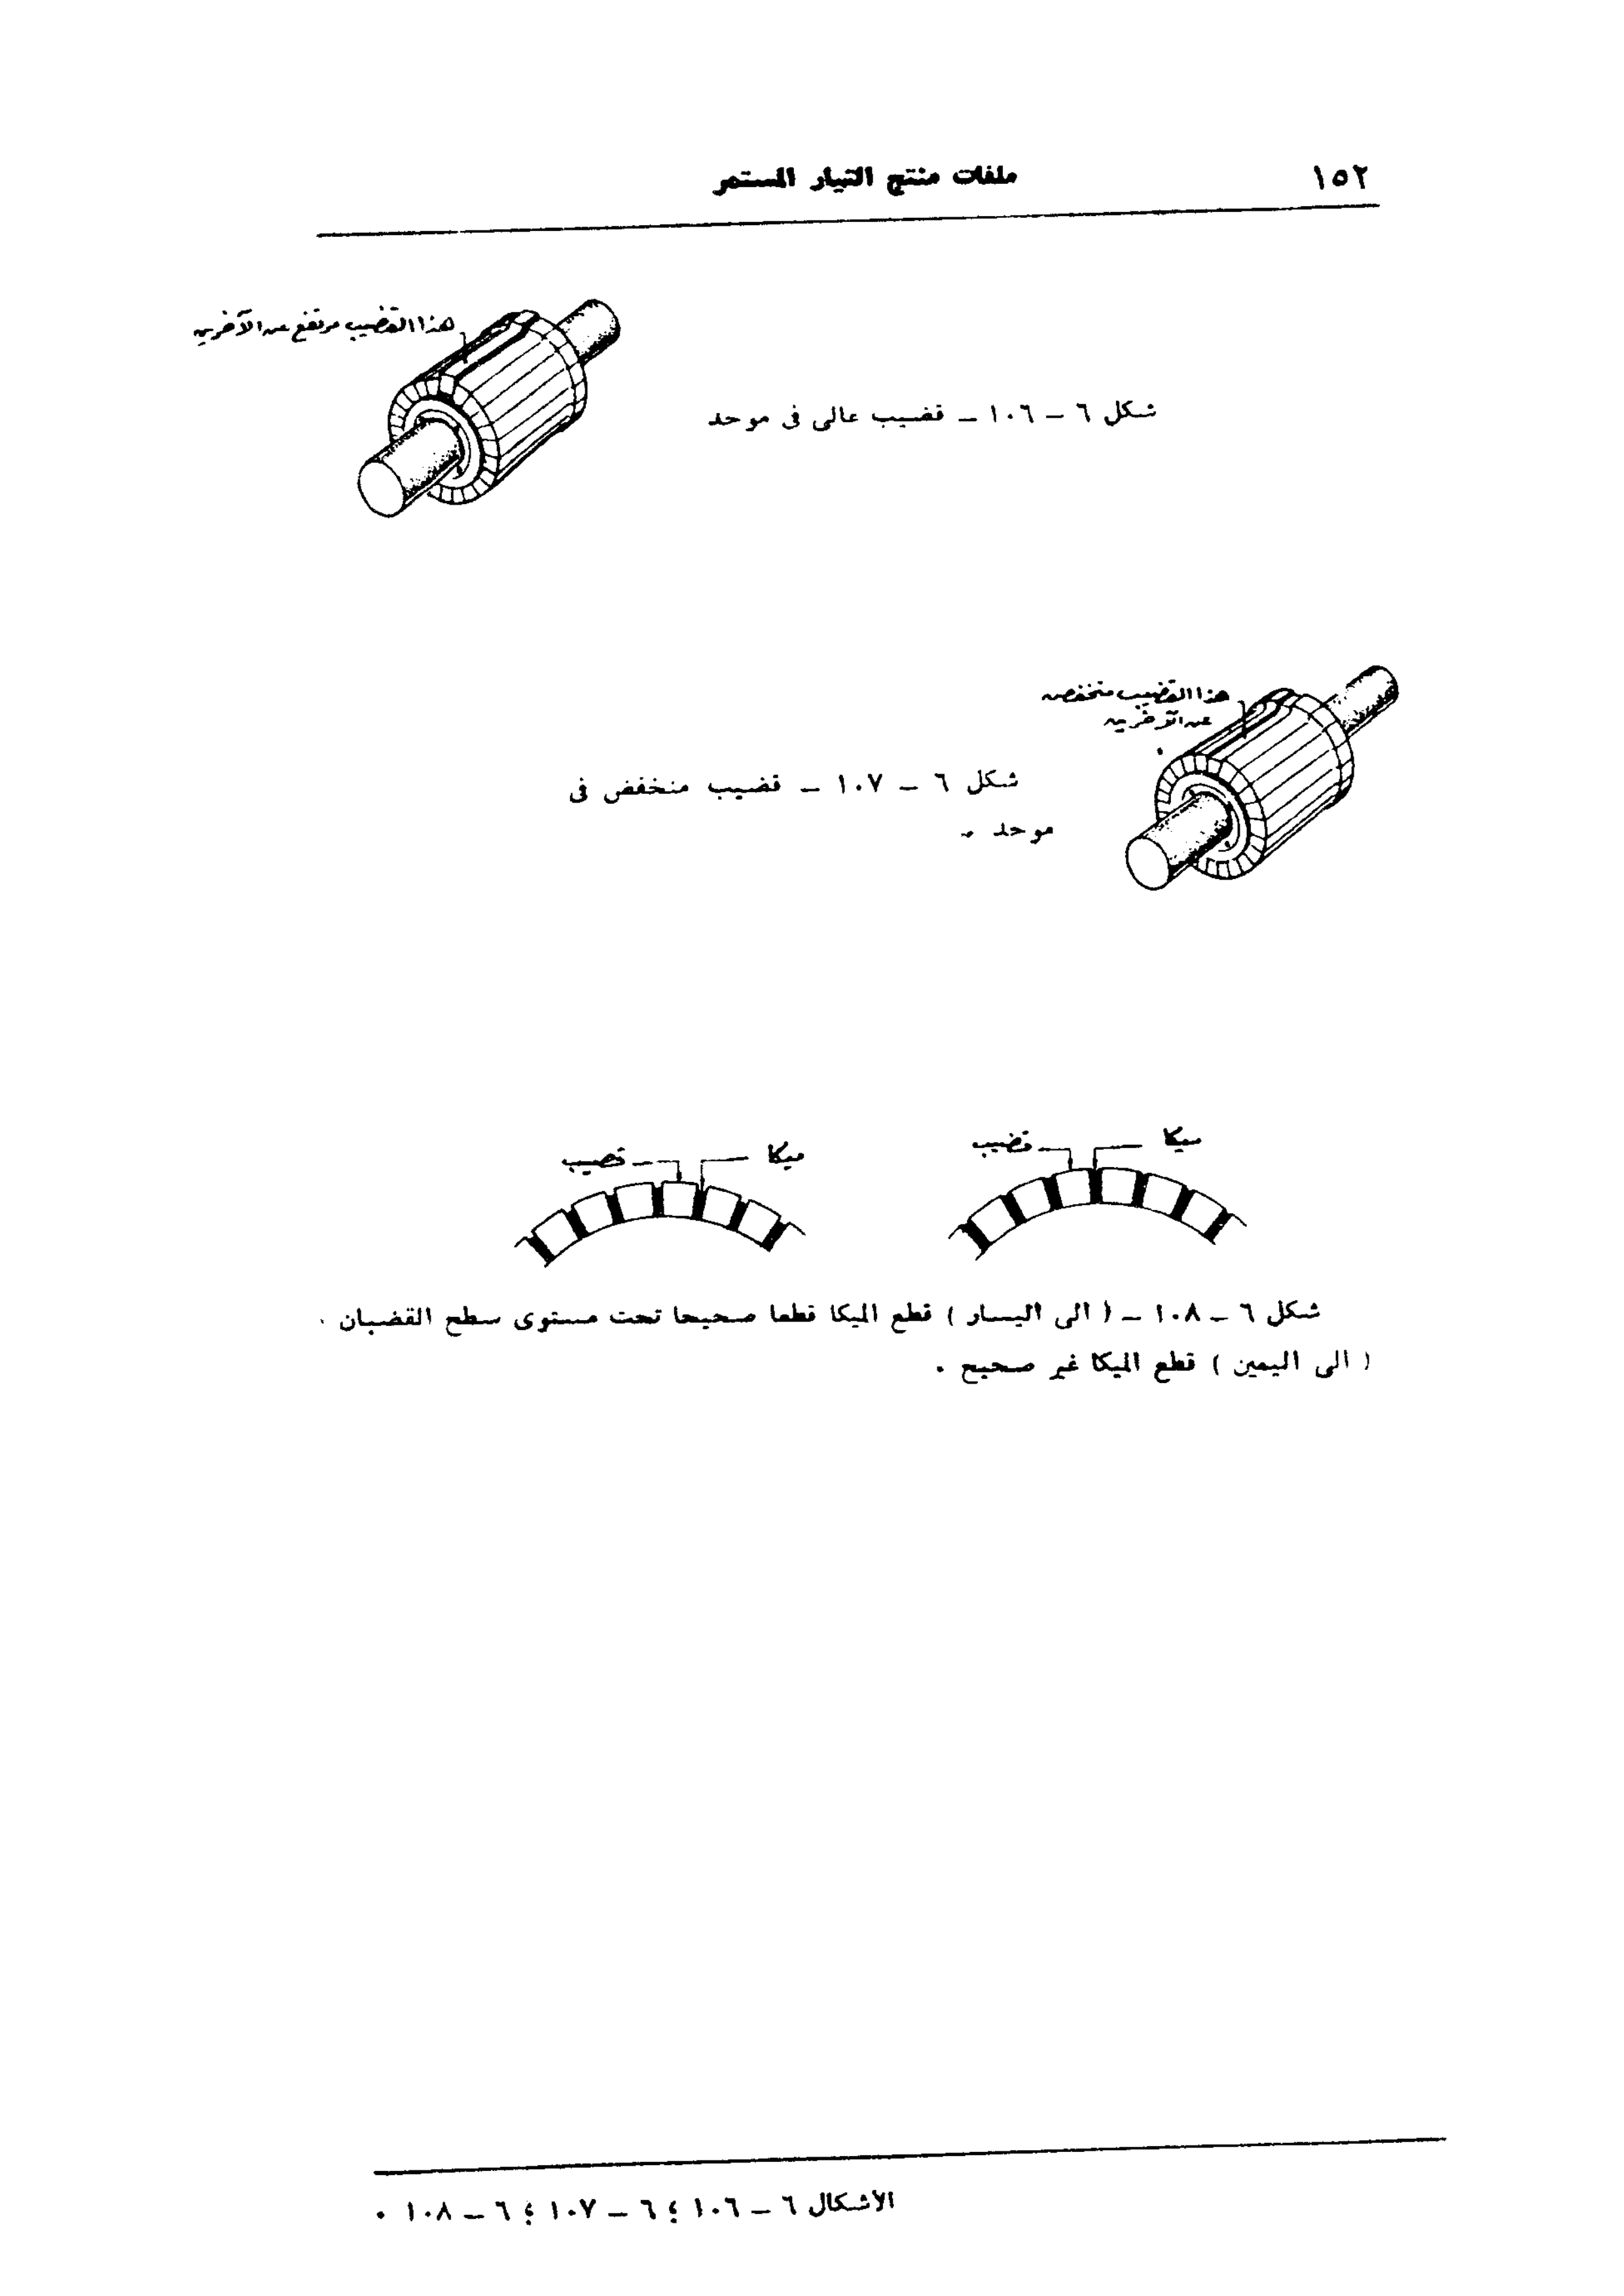 ١٥٢
ملفات منتج التيار المستمر
هذا القضيب مرتفع عن الآخرين
شكل ٦ – ١٠٦ – قضيب عالى فى موحد
هذا القضيب منخفض
عن الآخرين
شكل ٦ – ١٠٧ – قضيب منخفض فى
موحد .
ميكا
قضيب
ميكا
قضيب
شكل ٦ – ١٠٨ – ( الى اليسار ) قطع الميكا قطعا صحيحا تحت مستوى سطح القضبان .
( الى اليمين ) قطع الميكا غير صحيح .
الأشكال ٦ – ١٠٦ ؛ ٦ – ١٠٧ ؛ ٦ – ١٠٨ .